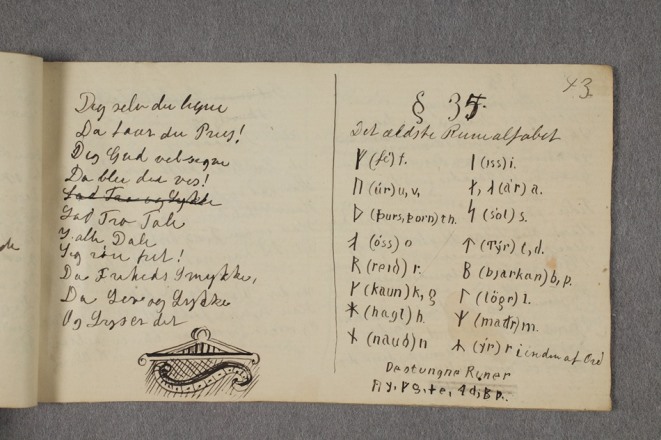 Dig selv du ligne
Da faar du Priis!
Dig Gud velsigne
Da blev du viis!
Lad Tro og Lykke
Lad Tro Tale
I alle Dale
Sig røre frit!
Da Friheds Smykke,
Da Seier og Lykke
Og Lyser dit
43.
§ 35.
Det ældste Runealfabet
ᚠ (fé) f.
ᚢ (úr) u, v,
ᚦ (þurs, þorn) th.
ᚬ (óss) o
ᚱ (reið) r.
ᚴ (kaun) k, g
ᚼ (hagl) h.
ᚾ (nauð) n
ᛁ (iss) i.
ᛅ, ᛆ (ár) a.
ᛋ (sól) s.
ᛏ (Týr) t, d.
ᛒ (bjarkan) b, p.
ᛚ (lögr) l.
ᛘ (maðr) m.
ᛦ (ýr) r i enden af Ord
De stungne Runer